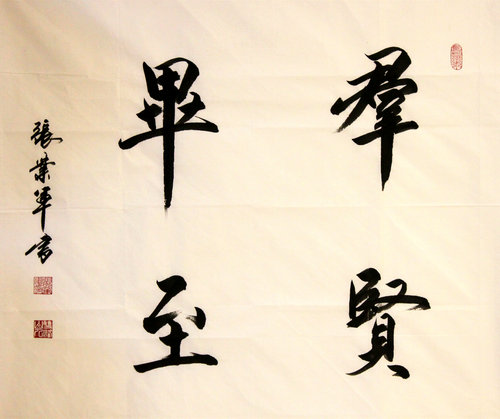 羣賢
畢至
張業軍書